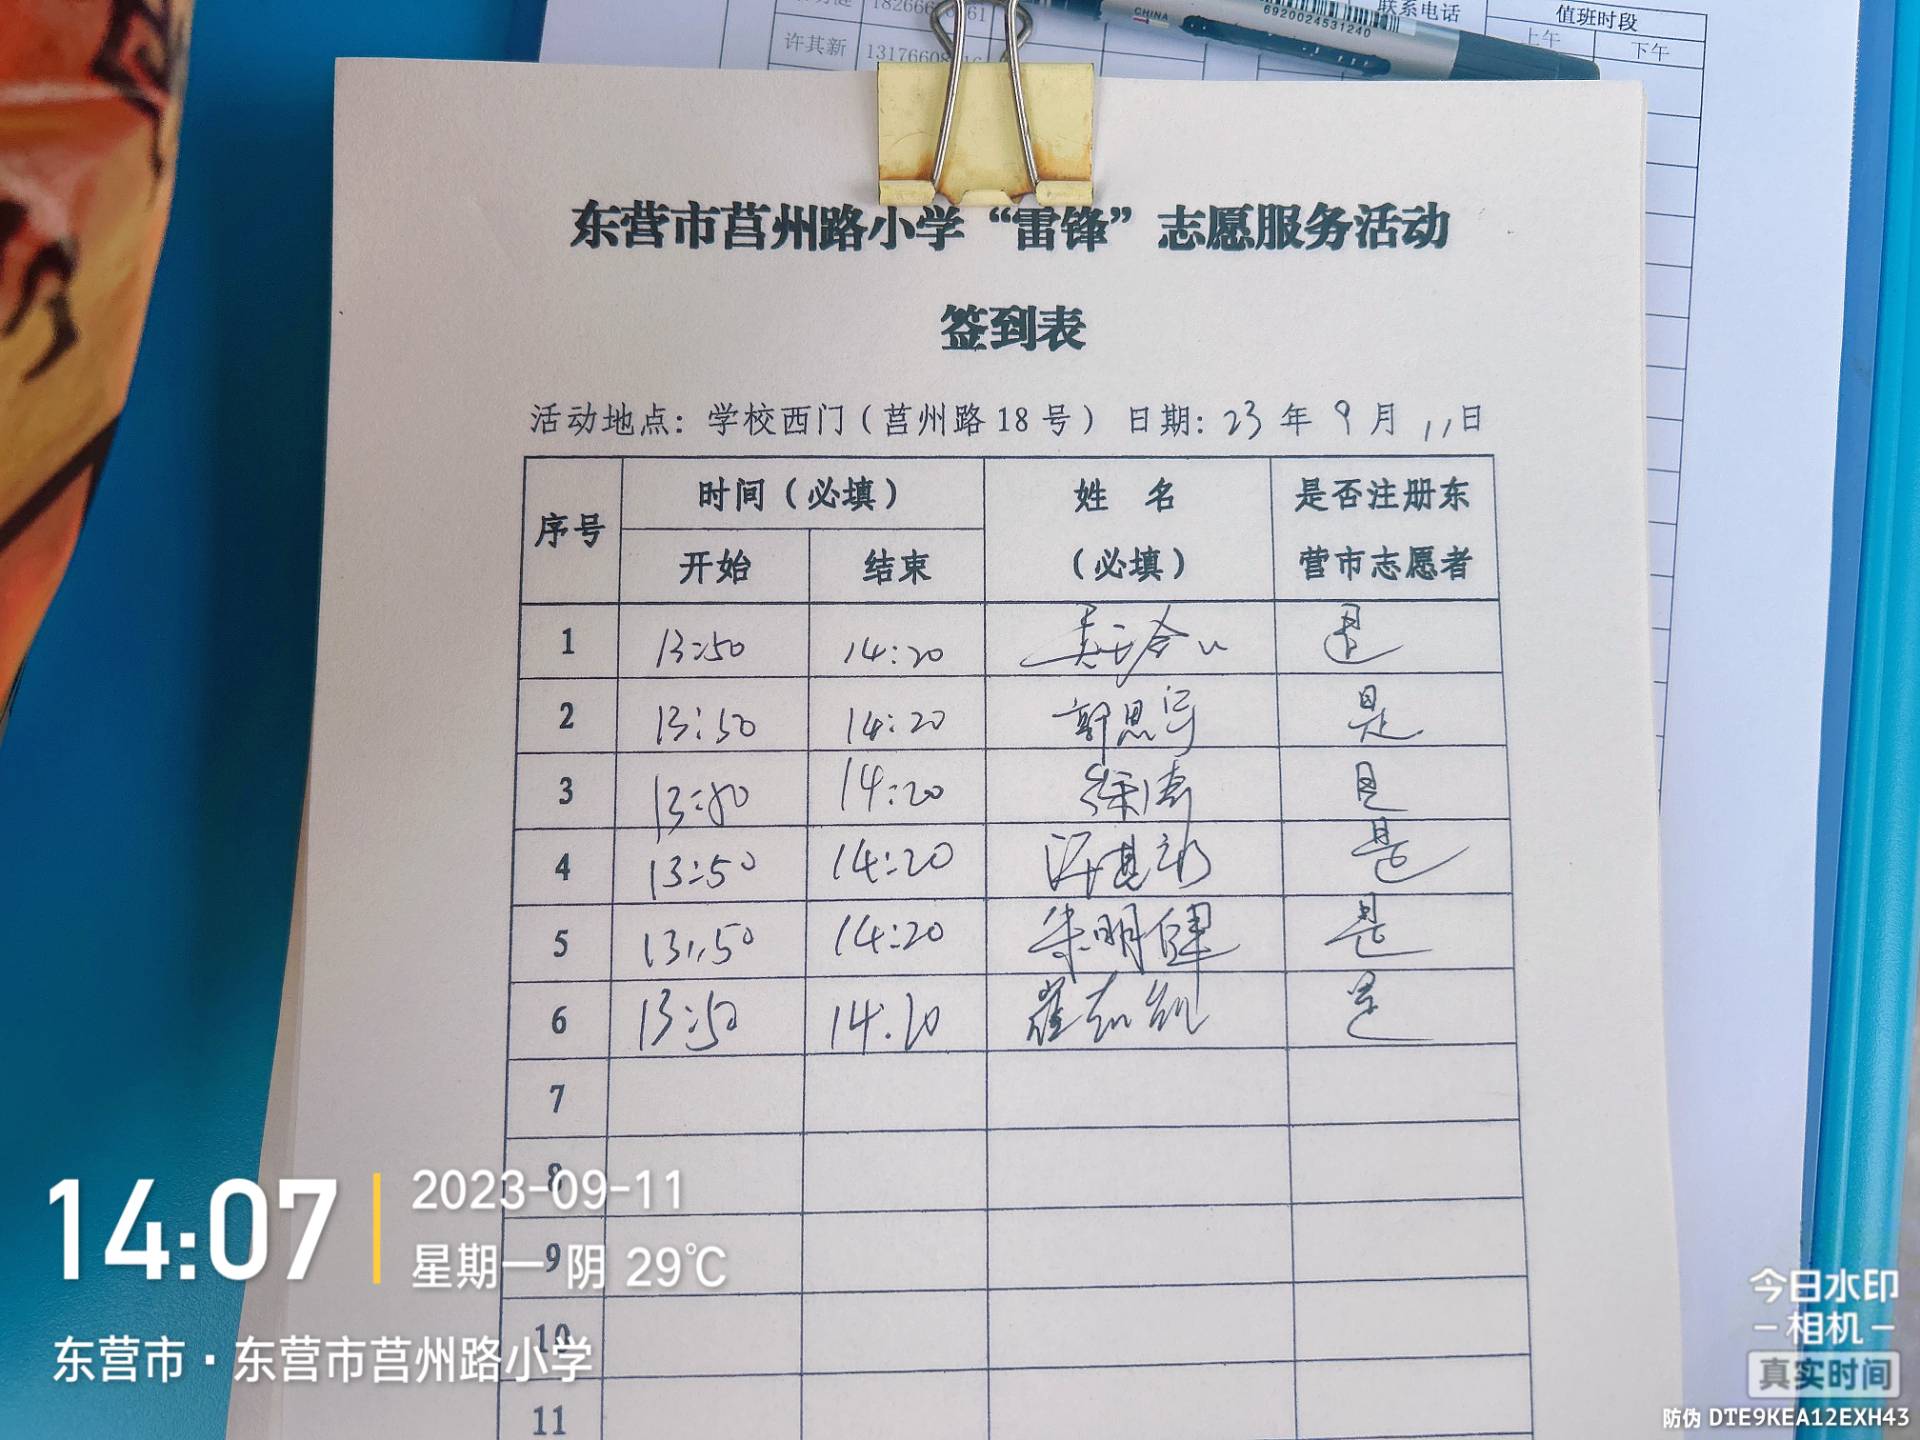 联系电话
值班时段
上午 下午
CHINA
6920024531240
许其新
东营市莒州路小学“雷锋”志愿服务活动
签到表
活动地点：学校西门（莒州路18号） 日期：23年9月11日
序号 时间（必填） 姓 名（必填） 是否注册东营市志愿者
开始 结束
1 13:50 14:20 是
2 13:50 14:20 郭思宇 是
3 13:50 14:20 徐涛 是
4 13:50 14:20 许其新 是
5 13:50 14:20 朱明健 是
6 13:50 14:20 崔 凯 是
7
8
9
10
11
14:07
2023-09-11
星期一 阴 29℃
东营市·东营市莒州路小学
今日水印
相机
真实时间
防伪 DTE9KEA12EXH43